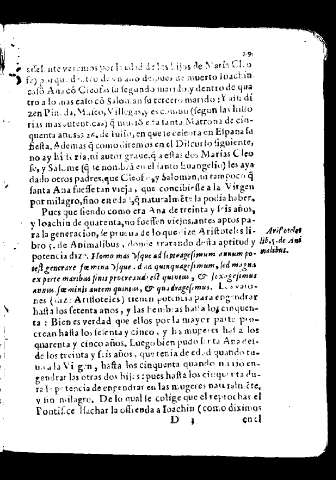 29.
adelante veremos por la edad de los hijos de Maria Cleo
fe) porque dentro de vn año despues de muerto Ioachin
casò Ana cõ Cleofas su segundo marido, y dentro de qua
tro a lo mas caso cõ Salomõ su tercero marido: Y assi di
zen Pineda, Maico, Villegas, y es comun (segun las histo
rias mas autenticas) q̃ murio esta santa Matrona de cin-
quenta años, a 26, de iulio, en que se celebra en España su
fiesta. Ademas q̃ como diremos en el Discurso siguiente,
no ay historia, ni autor graue, q̃ a estas dos Marias Cleo
fe, y Salome (q̃ se nombrã en el santo Euangelio) les aya
dado otros padres, que Cleofas, y Salomon, ni tampoco q̃
santa Ana fuesse tan vieja, que concibiesse a la Virgen
por milagro, sino en edad q̃ naturalmẽte la podia haber.
Pues que siendo como era Ana de treinta y seis años,
y Ioachin de quarenta, no fuessen viejos, antes aptos pa-
ra la generacion, se prueua de lo que dize Aristoteles li-
bro 5. de Animalibus, donde tratando desta aptitud y
potencia diz: Homo mas vsque ad septuagesimum annum po-
test generare fœmina vsque ad quinquagesimum, sed magna
ex parte maribus finis procreandi est quinque, & sexagesimus
annus fœminis autem quinque, & quadragesimus. Los varo-
nes (diz: Aristoteles) tienen potencia para engendrar
hasta los setenta años, y las hembras hasta los cinquen-
ta: Bien es verdad que ellos por la mayor parte pro-
crean hasta los sesenta y cinco, y las mugeres hasta los
quarenta y cinco años. Luego bien pudo santa Ana des-
de los treinta y seis años, que tenia de edad quando tu-
uo a la Virgen, hasta los cinquenta quando murio en-
gendrar las otras dos hijas: pues hasta los cinquenta du-
ra la potencia de engendrar en las mugeres naturalmẽte,
y no milagro. De lo qual se colige que el reprochar el
Pontifice Isachar la ofrenda a Ioachin (como diximos
D 3 en el
Aristoteles
lib. 5. de Ani
malibus.